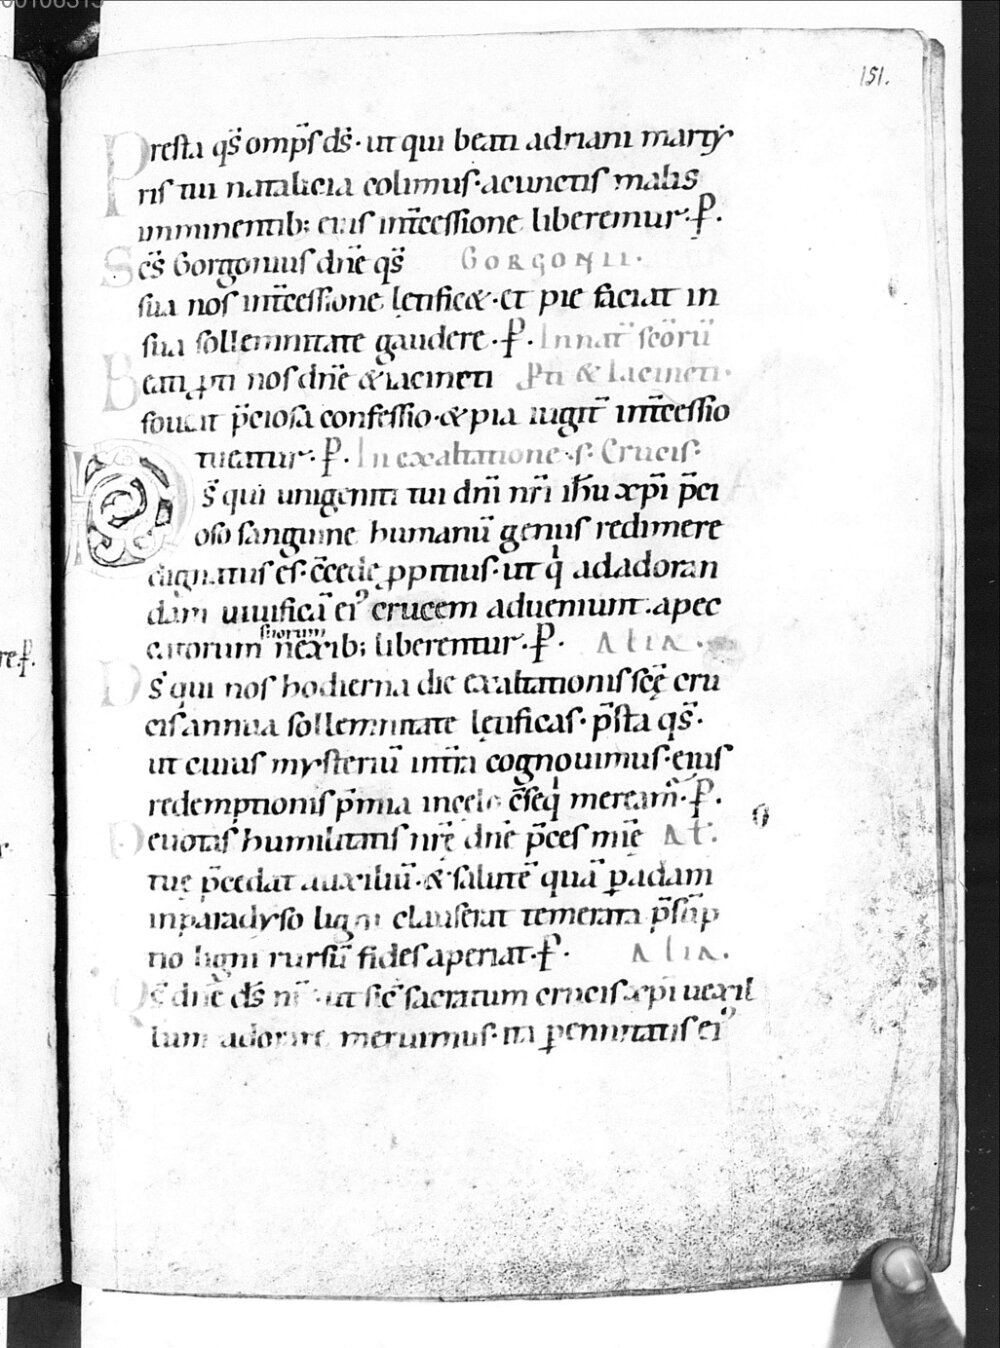 00106315
151.
Presta qs̄ omp̄s ds̄· ut qui beati adriani marty
ris tui natalicia colimus· acunctis malis
imminentib; eius int̄cessione liberemur· p̄.
Sc̄s Gorgonius dn̄e qs̄ GORGONII.
sua nos int̄cessione letificet· et pie faciat in
sua sollemnitate gaudere· p̄. In nat̄ sc̄orū
Beati ꝓti nos dn̄e & iacincti Pti & Iacincti·
foueat p̄ciosa confessio· & pia iugit̄ int̄cessio
tueatur· p̄. In exaltatione· s· Crucis·
Ds̄ qui unigeniti tui dn̄i nr̄i ih̄u xp̄i p̄ci
oso sanguine humanū genus redimere
dignatus es· c̄cede ꝓpitius· ut q̄ adadoran
dam uiuificā ei' crucem adueniunt· apec
suorum
catorum nexib; liberentur· p̄. ALIA.
Ds̄ qui nos hodierna die exaltationis sc̄ę cru
cis annua sollemnitate lętificas· p̄sta qs̄·
ut cuius mysteriū int̄ra cognouimus· eius
redemptionis p̄mia incelo c̄seq̄ meream̄· p̄.
Deuotas humilitatis nr̄ę dn̄e p̄ces mīe At̄.
tuę p̄cedat auxiliū· & salutē quā ꝑadam
inparadyso ligni clauserat temerata p̄sūp
tio ligni rursū fides aperiat· p̄. ALIA.
Qs̄ dn̄e ds̄ nr̄ ut sic̄ sacratum crucis xp̄i uexil
lum adorare meruimus· ita ꝑennitatis ei'
re p̄.